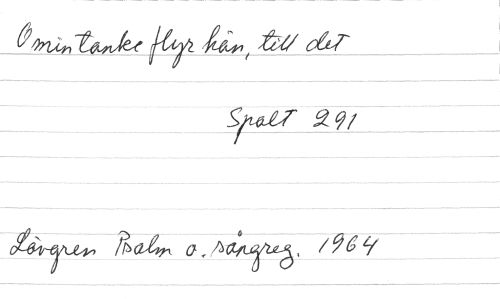 O min tanke flyr hän, till det
Spalt 291
Lövgren Psalm o. sångreg. 1964